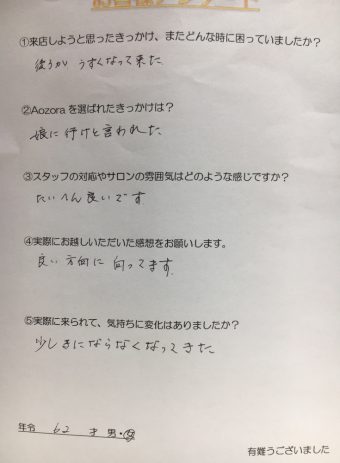 お客様アンケート
①来店しようと思ったきっかけ、またどんな時に困っていましたか？
後ろが うすくなって来た
②Aozoraを選ばれたきっかけは？
娘に行けと言われた
③スタッフの対応やサロンの雰囲気はどのような感じですか？
たいへん良いです
④実際にお越しいただいた感想をお願いします。
良い方向に向ってます
⑤実際に来られて、気持ちに変化はありましたか？
少しきにならなくなってきた
年令 62 才 男・女
有難うございました